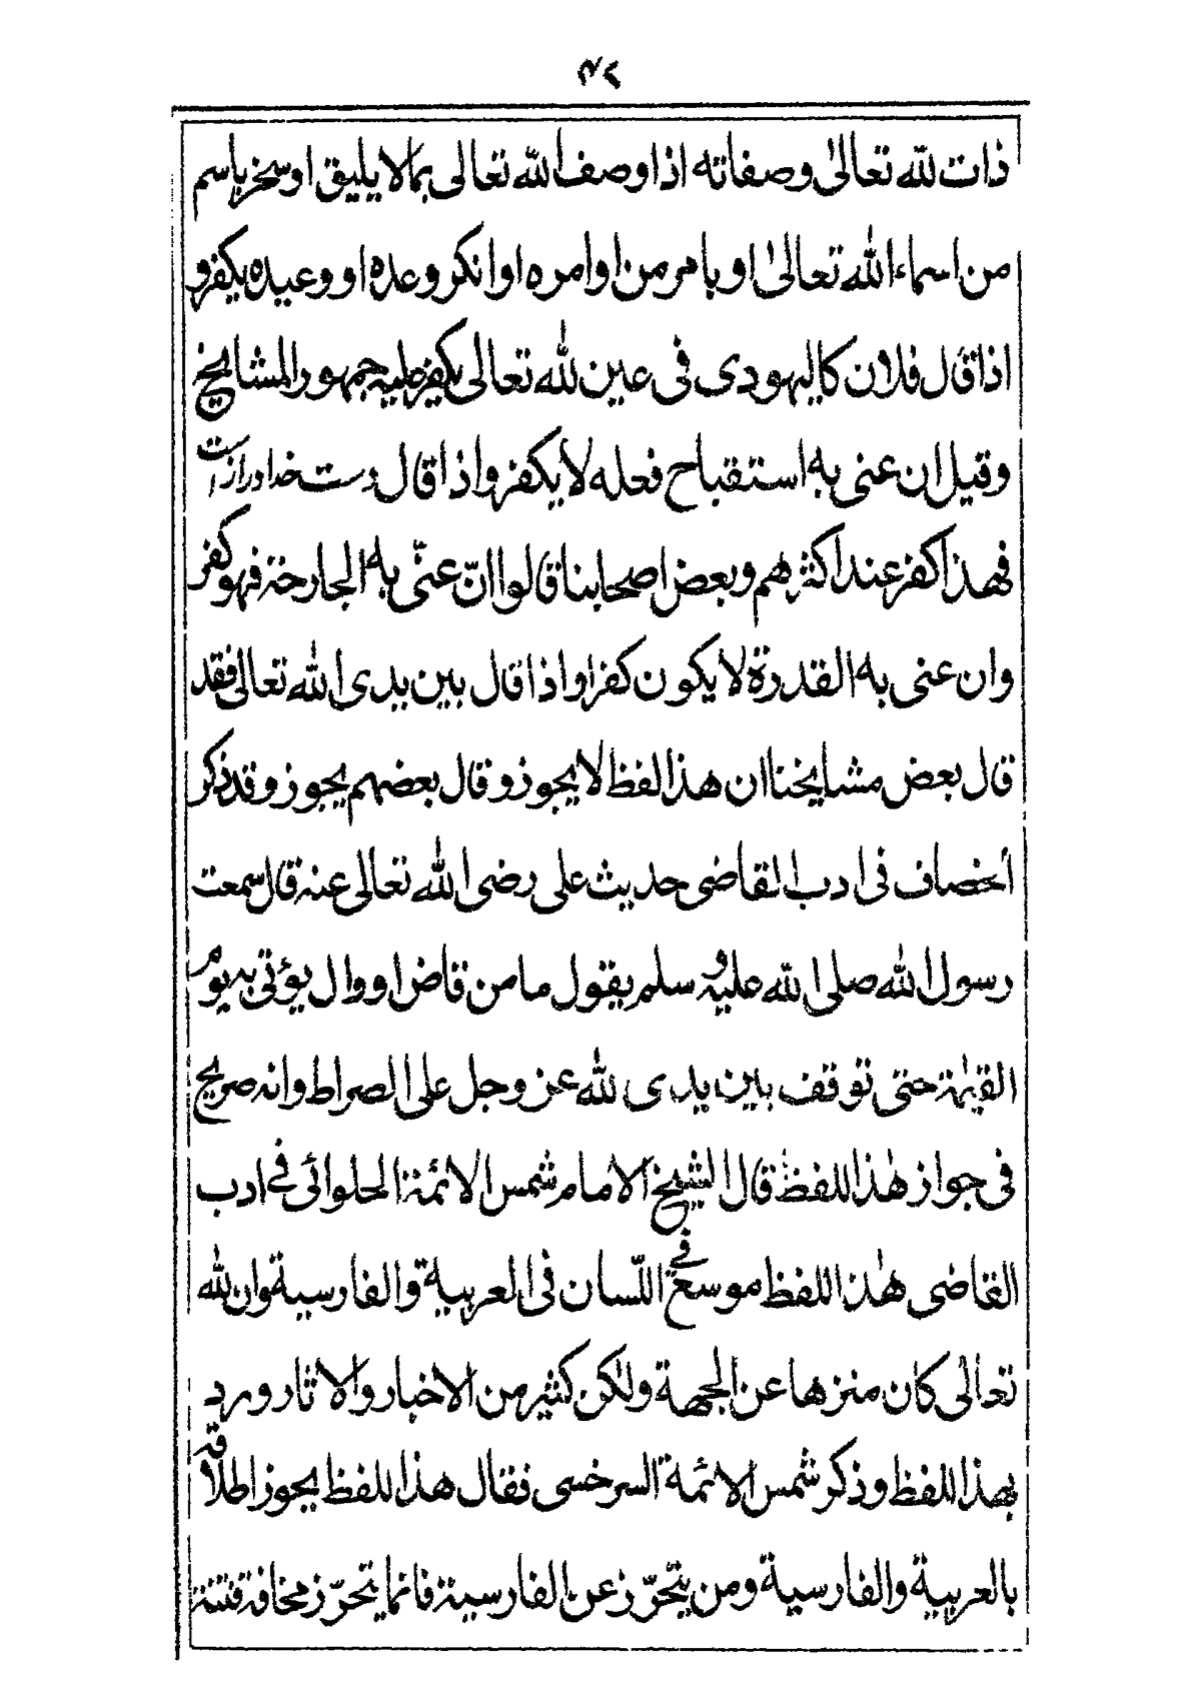 ٤٢
ذات لله تعالیٰ وصفاته اذا وصف الله تعالی بما لا یلیق او سخر باسم
من اسماء الله تعالیٰ او بامر من اوامره او انکر وعده او وعیده یکفر و
اذا قال فلان کالیهودی فی عین لله تعالی یکفر علیه جمهور المشایخ
وقیل ان عنی به استقباح فعله لا یکفر واذا قال دست خدا دراز است
فهذا کفر عند اکثرهم وبعض اصحابنا قالوا انّ عنّی به الجارحة فهو کفر
وان عنی به القدرة لا یکون کفرا واذا قال بین یدی الله تعالی فقد
قال بعض مشایخنا ان هذا لفظ لا یجوز وقال بعضهم یجوز وقد ذکر
الخصاف فی ادب القاضی حدیث علی رضی الله تعالی عنه قال سمعت
رسول الله صلی الله علیه و سلم یقول ما من قاض او وال یؤتی به یوم
القیٰمة حتی توقف بین یدی لله عز وجل علی الصراط وانه صریح
فی جواز هٰذا اللفظ قال الشیخ الامام شمس الائمة الحلوائی فی ادب
القاضی هٰذا اللفظ موسع فی اللّسان فی العربیة والفارسیة وان لله
تعالٰی کان منزها عن الجهة ولٰکن کثیر من الاخبار والاٰثار ورد
بهذا اللفظ وذکر شمس الائمة السرخسی فقال هذا اللفظ یجوز اطلاقه
بالعربیة والفارسیة ومن یتحّرز عن الفارسیة فانما یتحرّز مخافة فتنة